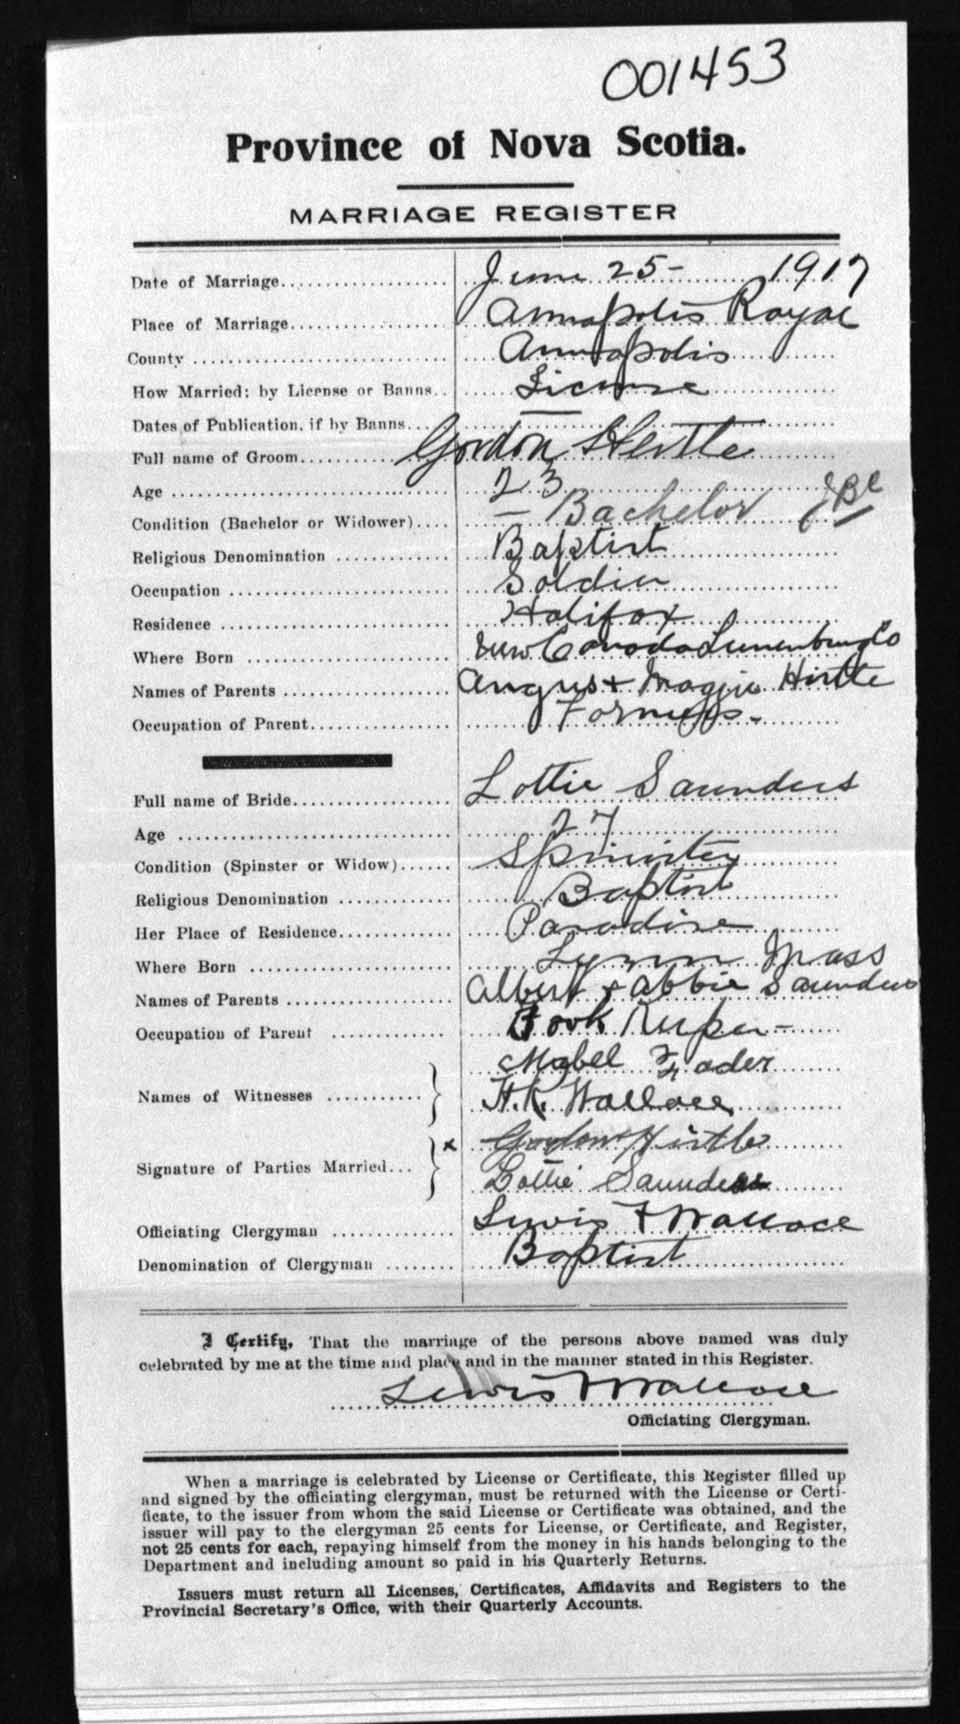 001453
Province of Nova Scotia.
MARRIAGE REGISTER
Date of Marriage.................... June 25- 1917
Place of Marriage.................. Annapolis Royal
County .............................. Annapolis
How Married: by License or Banns.. License
Dates of Publication, if by Banns... —
Full name of Groom............... Gordon Hirtle
Age ................................. 23
Condition (Bachelor or Widower).... — Bachelor
Religious Denomination ............ Baptist
Occupation ........................ Soldier
Residence ......................... Halifax
Where Born ...................... New Canada Lunenburg Co
Names of Parents ................. Angus + Maggie Hirtle
Occupation of Parent............... Farmers.
Full name of Bride.................. Lottie Saunders
Age ................................. 27
Condition (Spinster or Widow)...... Spinster
Religious Denomination ............ Baptist
Her Place of Residence............. Paradise
Where Born ...................... Lynn Mass
Names of Parents ................. Albert + Abbie Saunders
Occupation of Parent ............ Book Keeper -
Mabel Zader
Names of Witnesses ........... H.K. Wallace
x Gordon Hirtle
Signature of Parties Married... Lottie Saunders
Officiating Clergyman ............. Lewis F Wallace
Denomination of Clergyman ........ Baptist
I Certify, That the marriage of the persons above named was duly
celebrated by me at the time and place and in the manner stated in this Register.
Lewis F Wallace
Officiating Clergyman.
When a marriage is celebrated by License or Certificate, this Register filled up
and signed by the officiating clergyman, must be returned with the License or Certi-
ficate, to the issuer from whom the said License or Certificate was obtained, and the
issuer will pay to the clergyman 25 cents for License, or Certificate, and Register,
not 25 cents for each, repaying himself from the money in his hands belonging to the
Department and including amount so paid in his Quarterly Returns.
Issuers must return all Licenses, Certificates, Affidavits and Registers to the
Provincial Secretary's Office, with their Quarterly Accounts.